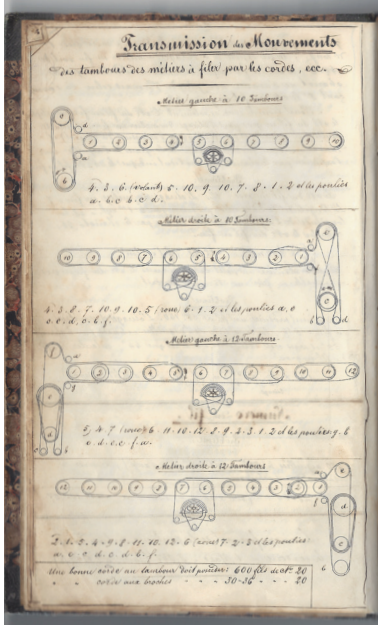 Transmission des Mouvements
des tambours des métiers à filer par les cordes, ecc.
Métier gauche à 10 Tambours
1 2 3 4 5 6 7 8 9 10
4. 3. 6. (volant) 5. 10. 9. 10. 7. 8. 1. 2 et les poulies
a. b. c b. c. d.
Métier droite à 10 Tambours.
10 9 8 7 6 5 4 3 2 1
4. 3. 8. 7. 10. 9. 10. 5 (roue) 6. 1. 2 et les poulies a. o
Métier gauche à 12 Tambours
1 2 3 4 5 6 7 8 9 10 11 12
5. 4. 7 (roue) 6. 11. 10. 12. 8. 9. 2. 3. 1. 2 et les poulies g. b
Métier droite à 12 Tambours
12 11 10 9 8 7 6 5 4 3 2 1
2. 1. 3. 4. 9. 8. 11. 10. 12. 6 (roue) 7. 2. 3 et les poulies
a. e. c. d. c. d. b. f.
Une bonne corde au tambour doit porter: 600 fils de Nº. 20
" " corde aux broches - - - 30-36 - - - 20